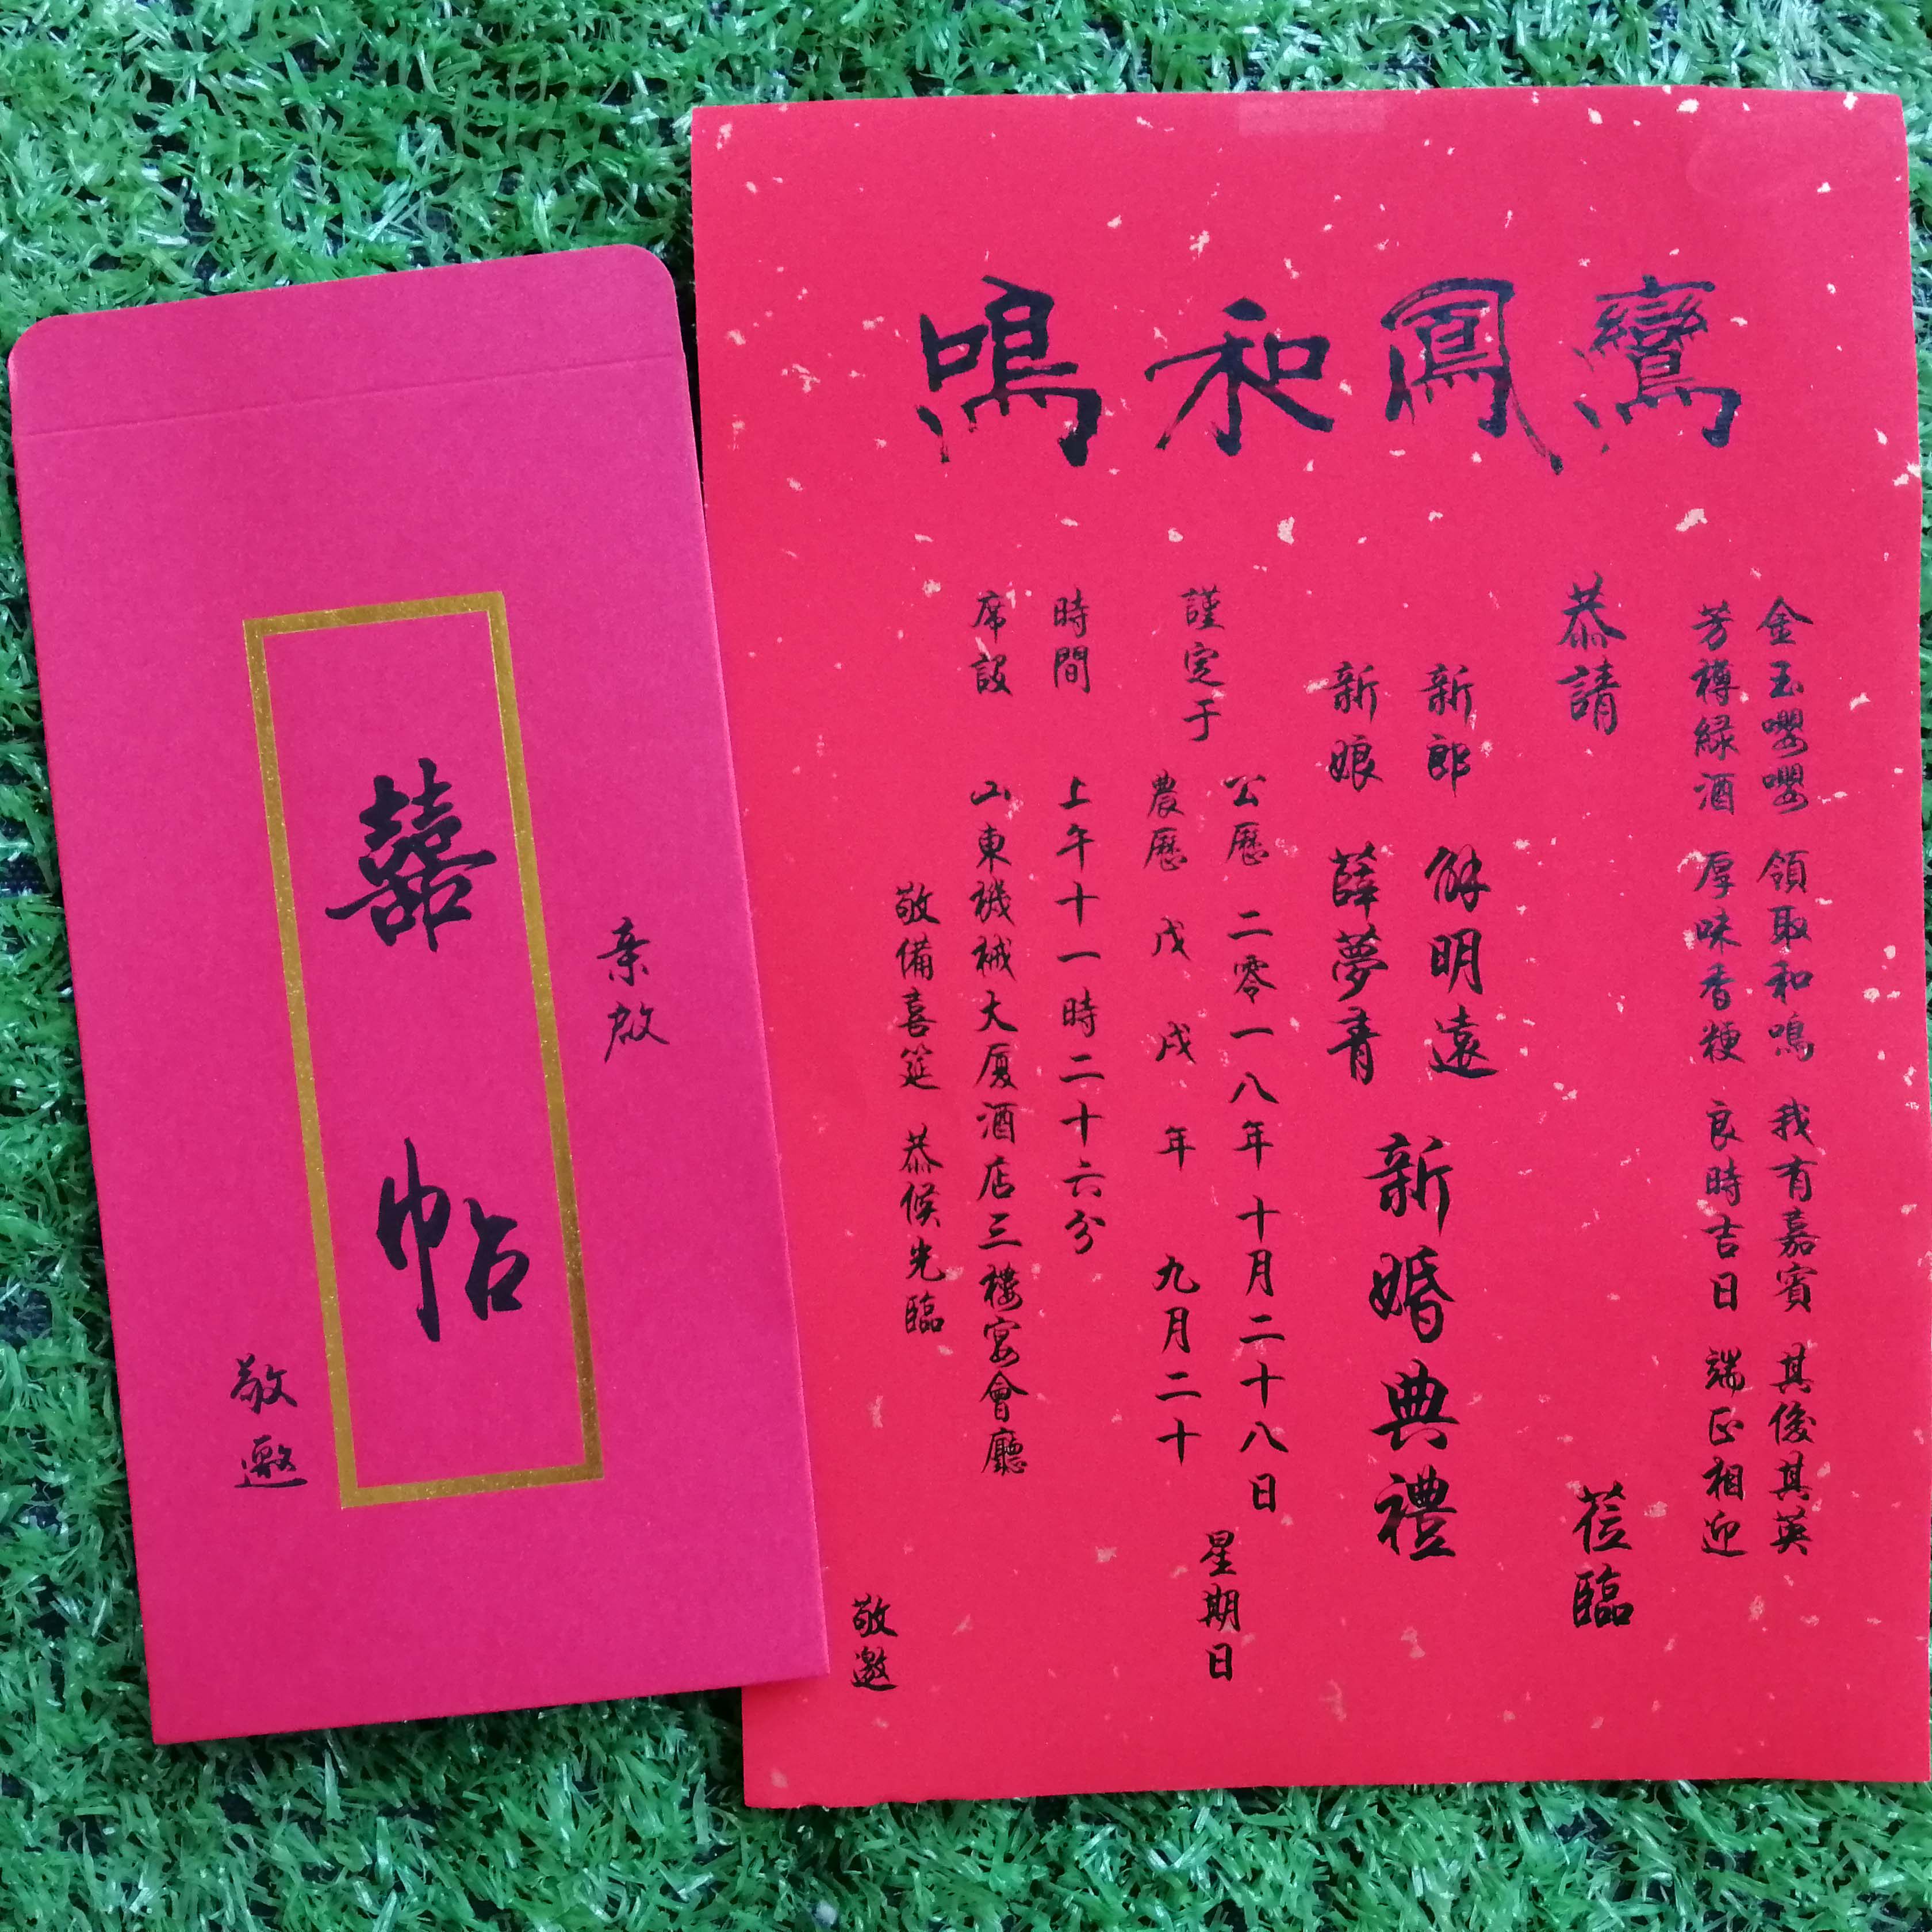 囍帖
亲啟
敬邀
鸞鳳和鳴
金玉嚶嚶 領取和鳴 我有嘉賓 其俊其英
芳樽綠酒 厚味香粳 良時吉日 端正相迎
恭請
蒞臨
新郎 解明遠
新娘 薛夢青
新婚典禮
謹定于
公歷 二零一八年十月二十八日
農歷 戊戌年 九月二十
星期日
時間 上午十一時二十六分
席設 山東機械大厦酒店三樓宴會廳
敬備喜筵 恭候光臨
敬邀